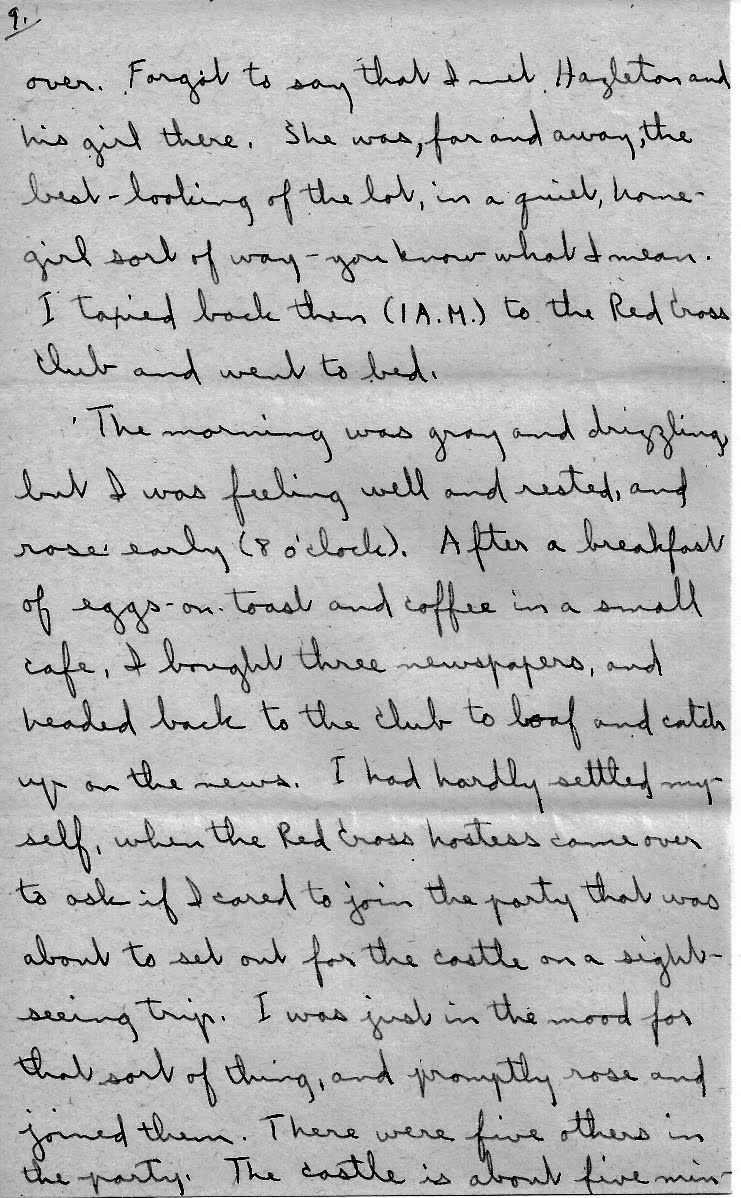 9.
over. Forgot to say that I met Hazleton and
his girl there. She was, far and away, the
best-looking of the lot, in a quiet, home-
girl sort of way - you know what I mean.
I taxied back then (1 A.M.) to the Red Cross
Club and went to bed.
The morning was gray and drizzling,
but I was feeling well and rested, and
rose early (8 o'clock). After a breakfast
of eggs-on-toast and coffee in a small
cafe, I bought three newspapers, and
headed back to the club to loaf and catch
up on the news. I had hardly settled my-
self, when the Red Cross hostess came over
to ask if I cared to join the party that was
about to set out for the castle on a sight-
seeing trip. I was just in the mood for
that sort of thing, and promptly rose and
joined them. There were five others in
the party. The castle is about five min-